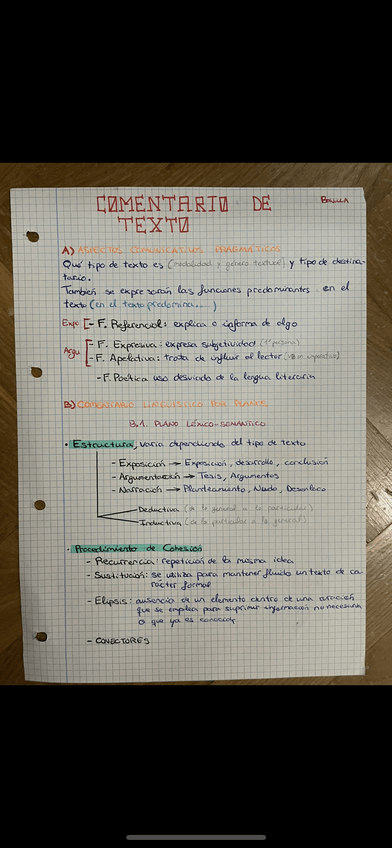 COMENTARIO DE
TEXTO
BOLILLA
A) ASPECTOS COMUNICATIVOS PRAGMÁTICOS
Qué tipo de texto es (modalidad y género textual) y tipo de destina-
tario.
También se expresarán las funciones predominantes en el
texto (en el texto predomina...)
Expo [- F. Referencial: explica o informa de algo
Argu [- F. Expresiva: expresa subjetividad (1ª persona)
- F. Apelativa: trata de influir al lector
- F. Poética uso desviado de la lengua literaria
B) COMENTARIO LINGÜÍSTICO POR PLANOS
B.1. PLANO LÉXICO-SEMÁNTICO
• Estructura, varia dependiendo del tipo de texto
- Exposición → Exposición, desarrollo, conclusión
- Argumentación → Tesis, Argumentos
- Narración → Planteamiento, Nudo, Desenlace
Deductiva (de lo general a lo particular)
Inductiva (de lo particular a lo general)
• Procedimiento de Cohesión
- Recurrencia: repetición de la misma idea
- Sustitución: se utiliza para mantener fluido un texto de ca-
rácter formal
- Elipsis: ausencia de un elemento dentro de una oración
que se emplea para suprimir información no necesaria
o que ya es conocida
- CONECTORES